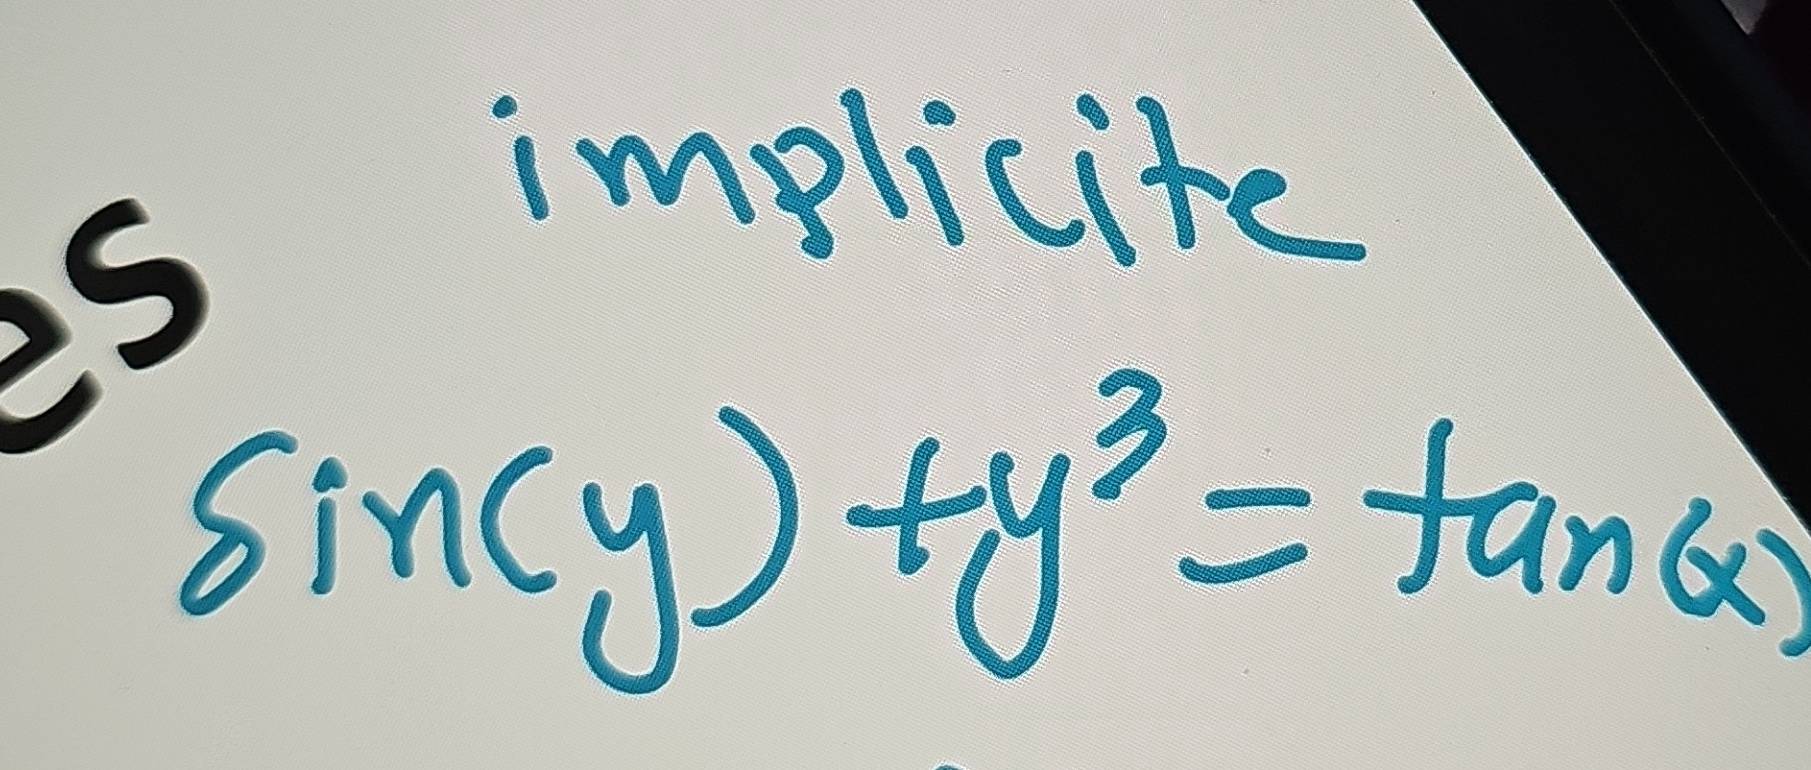 implicite
es
sin(y) + y³ = tan(x)